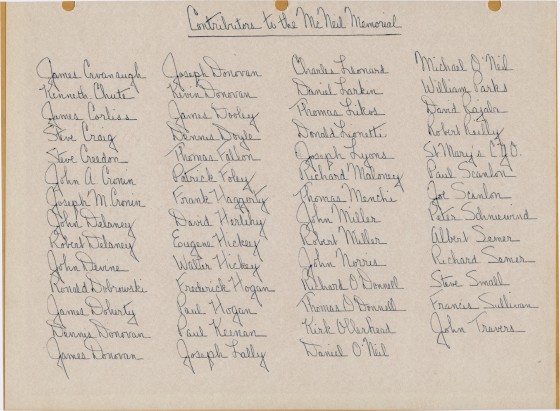 Contributors to the McNeil Memorial
James Cavanaugh
Kenneth Chute
James Corliss
Steve Craig
Steve Creedon
John A Cronin
Joseph M Cronin
John Delaney
Robert Delaney
John Devine
Ronald Dobrowski
James Doherty
Dennis Donovan
James Donovan
Joseph Donovan
Kevin Donovan
James Dooley
Dennis Doyle
Thomas Fallon
Patrick Foley
Frank Haggerty
David Herlihy
Eugene Hickey
Walter Hickey
Frederick Hogan
Paul Hogan
Paul Keenan
Joseph Lally
Charles Leonard
Daniel Larkin
Thomas Likos
Donald Lyonett
Joseph Lyons
Richard Maloney
Thomas Menchi
John Miller
Robert Miller
John Norris
Richard O'Donnell
Thomas O'Donnell
Kirk
Daniel O'Neil
Michael O'Neil
William Parks
David
Robert Reilly
St Mary's C.Y.O.
Paul Scanlon
Joe Scanlon
Peter Schneewind
Albert Semer
Richard Semer
Steve Small
Francis Sullivan
John Travers